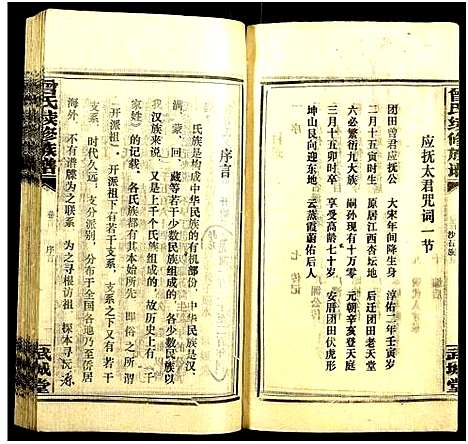 曾氏续修族谱
沙石族
武城堂
应抚太君咒词一节
团田曾君应抚公 大宋年间降生身 淳佑二年壬寅岁
二月十五寅时生 原居江西杏坛地 后迁团田老天堂
六必繁衍九大族 嗣孙现有十万零 元朝辛亥登天庭
三月十五卯时卒 享受高龄七十岁 安厝团田伏虎形
坤山艮向迎东地 云蒸霞蔚佑后人
序言
氏族是构成中华民族的有机部份，中华民族是汉、
满、蒙、回、藏等若干少数民族组成的。各少数民族以
我汉族来说，又是上千个氏族组成的，故历史上有《百
家姓》的记载。各氏族都有其本始所先，即俗之所谓
《开派祖》。开派祖下有若干支系，支系之下又有若干
支系，时代久远，支分派别，分布于全国各地乃至侨居
海外，不有谱牒为之联系，力求寻根访祖，探本寻
曾氏续修族谱
卷首
序言
武城堂